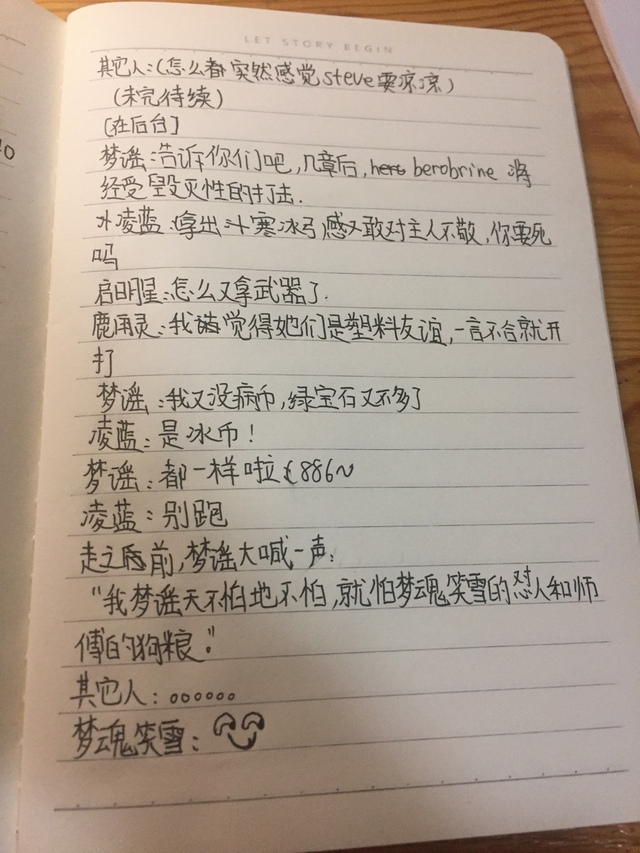 LET STORY BEGIN
其它人:(怎么都突然感觉steve要凉凉)
(未完待续)
[在后台]
梦谣:告诉你们吧,几章后, berobrine 将
经受毁灭性的打击.
凌蓝:拿出 寒冰弓 敢对主人不敬,你要死
吗
启明星:怎么又拿武器了.
鹿雨灵:我 觉得她们是塑料友谊,一言不合就开
打
梦谣:我又没病币,绿宝石又不多了
凌蓝:是冰币!
梦谣:都一样啦 886~
凌蓝:别跑
走之 前,梦谣大喊一声:
“我梦谣天不怕地不怕,就怕梦魂笑雪的怼人和师
傅的狗粮.”
其它人:。。。。。。
梦魂笑雪: